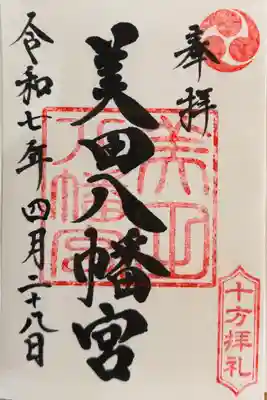 奉拝
美田八幡宮
令和七年四月二十八日
美田八幡宮
十方拝礼